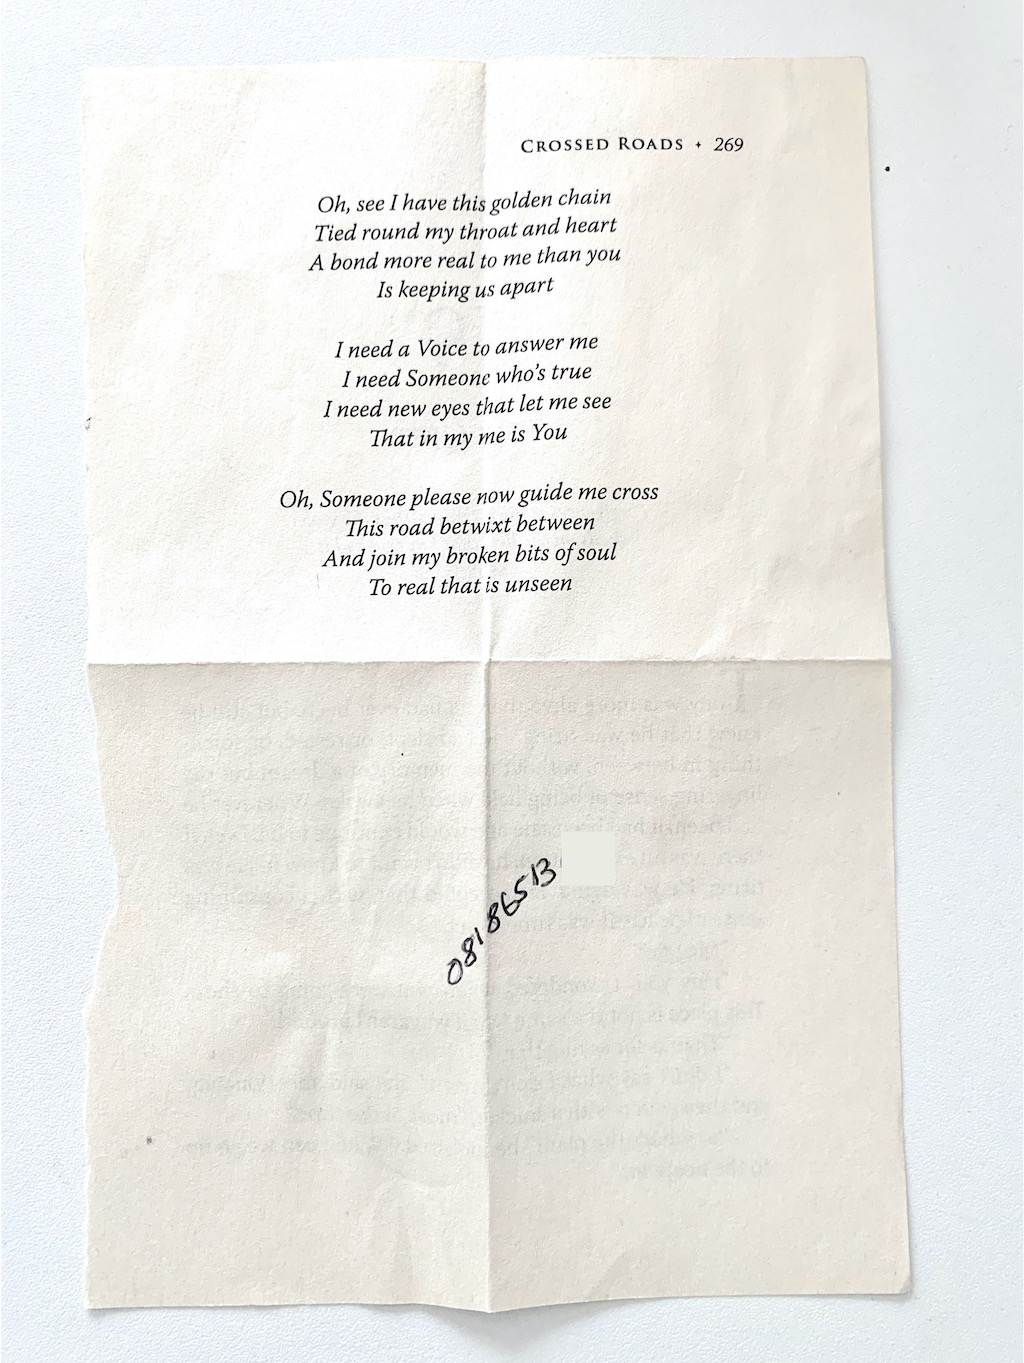 CROSSED ROADS ✦ 269
Oh, see I have this golden chain
Tied round my throat and heart
A bond more real to me than you
Is keeping us apart
I need a Voice to answer me
I need Someone who's true
I need new eyes that let me see
That in my me is You
Oh, Someone please now guide me cross
This road betwixt between
And join my broken bits of soul
To real that is unseen
08186513